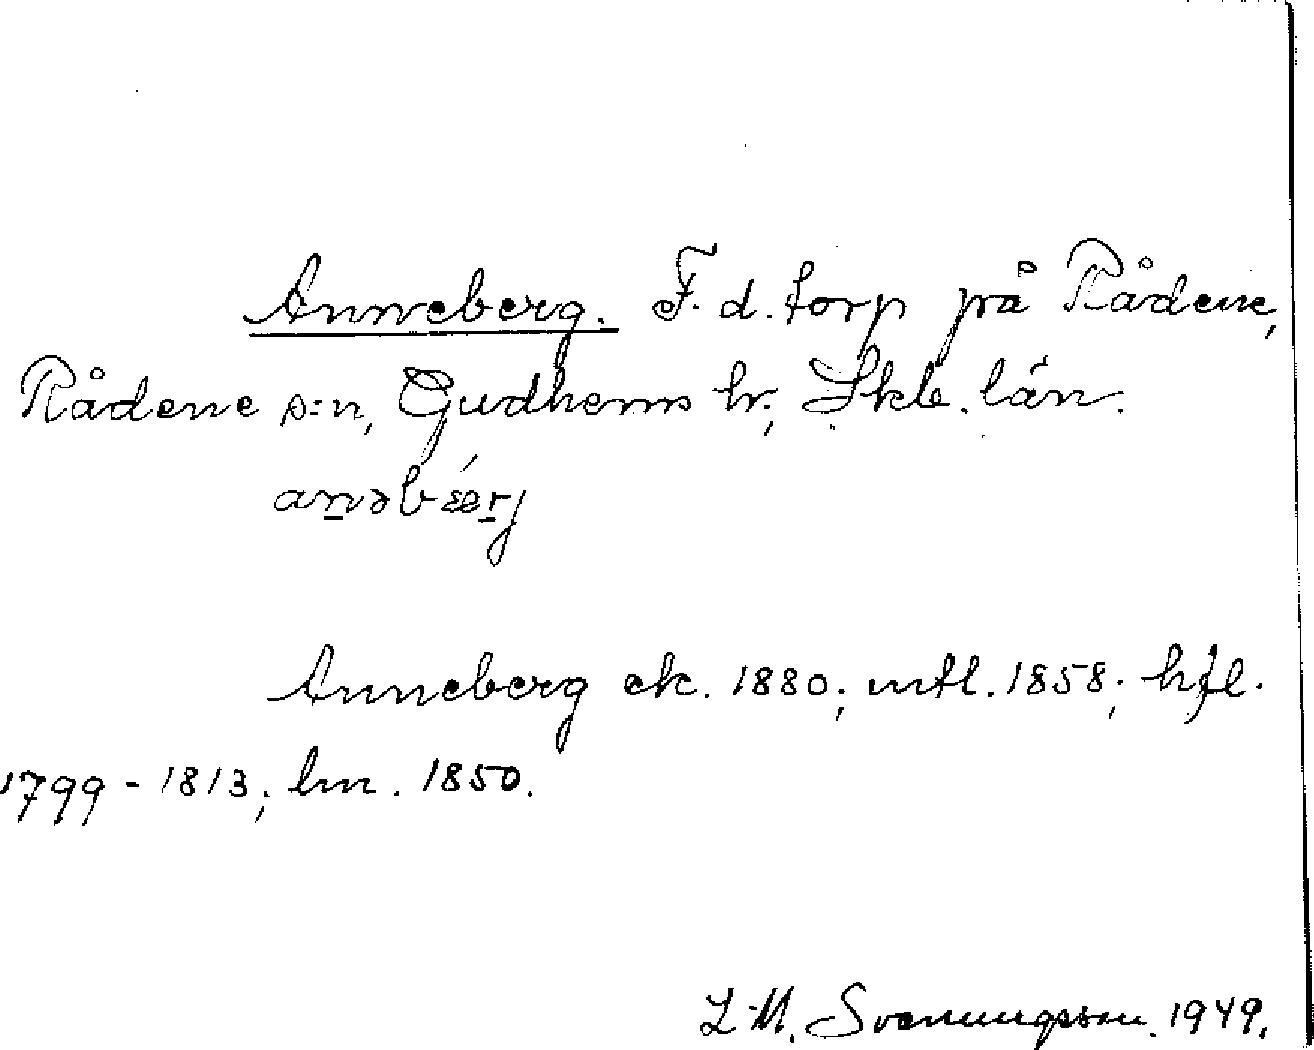 Anneberg. F. d. torp på Rådene,
Rådene s:n, Gudhems hr., Skb. län.
Anneberg ek. 1880; mtl. 1858; hfl.
1799 - 1813; lm. 1850.
L-M. Svenungsson. 1949.